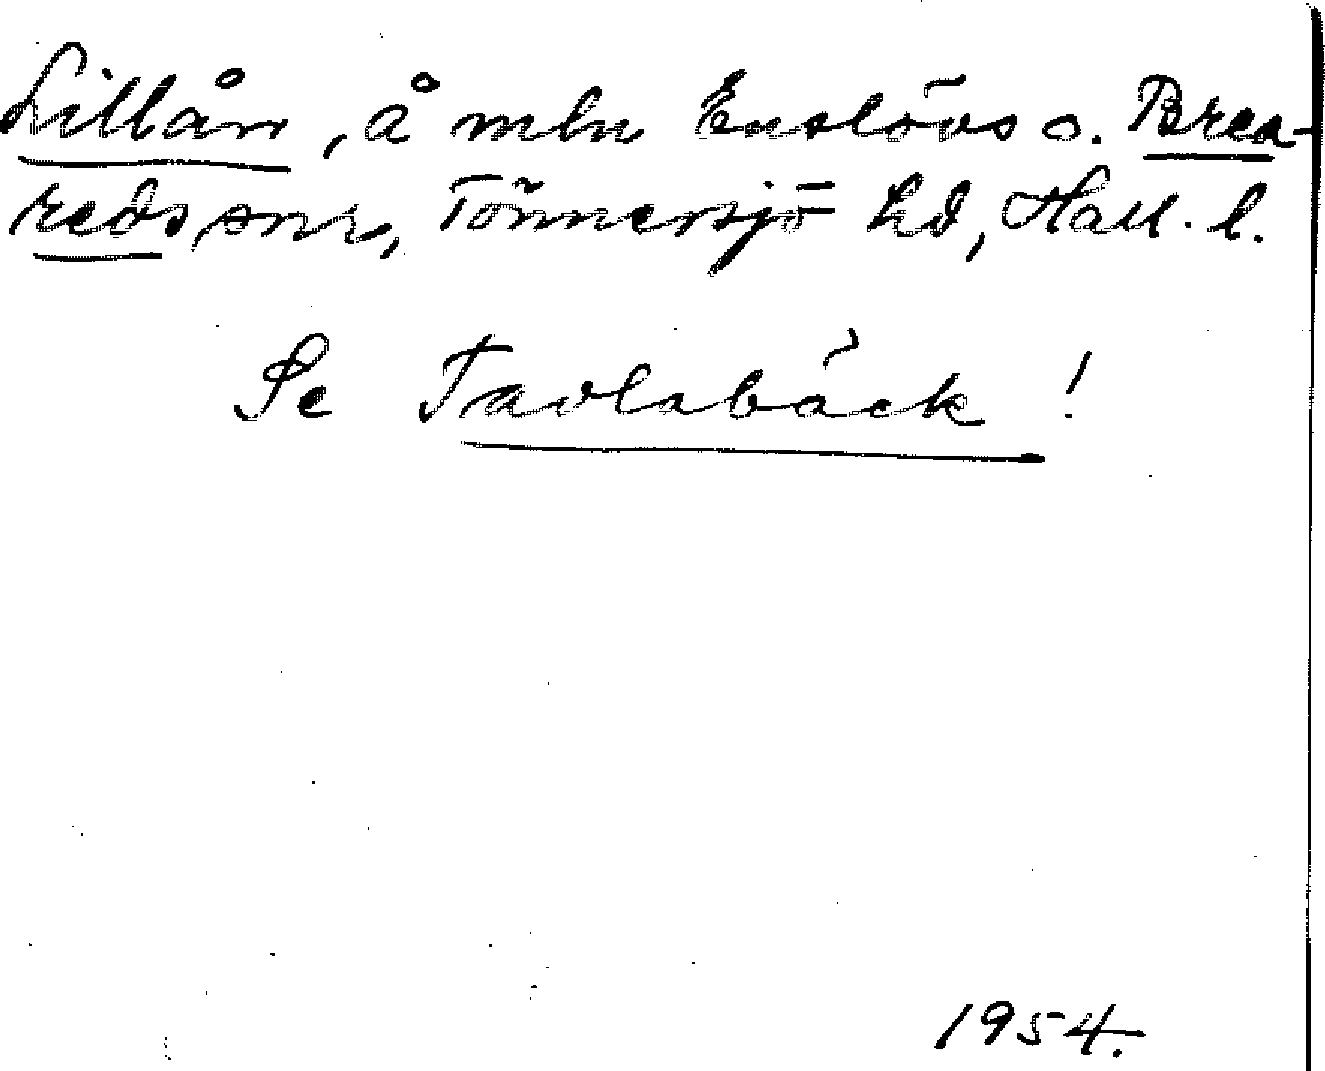 Lillån, å mln Enslövs o. Brea-
reds snr, Tönnersjö hd, Hall. l.
Se Tavlabäck!
1954.